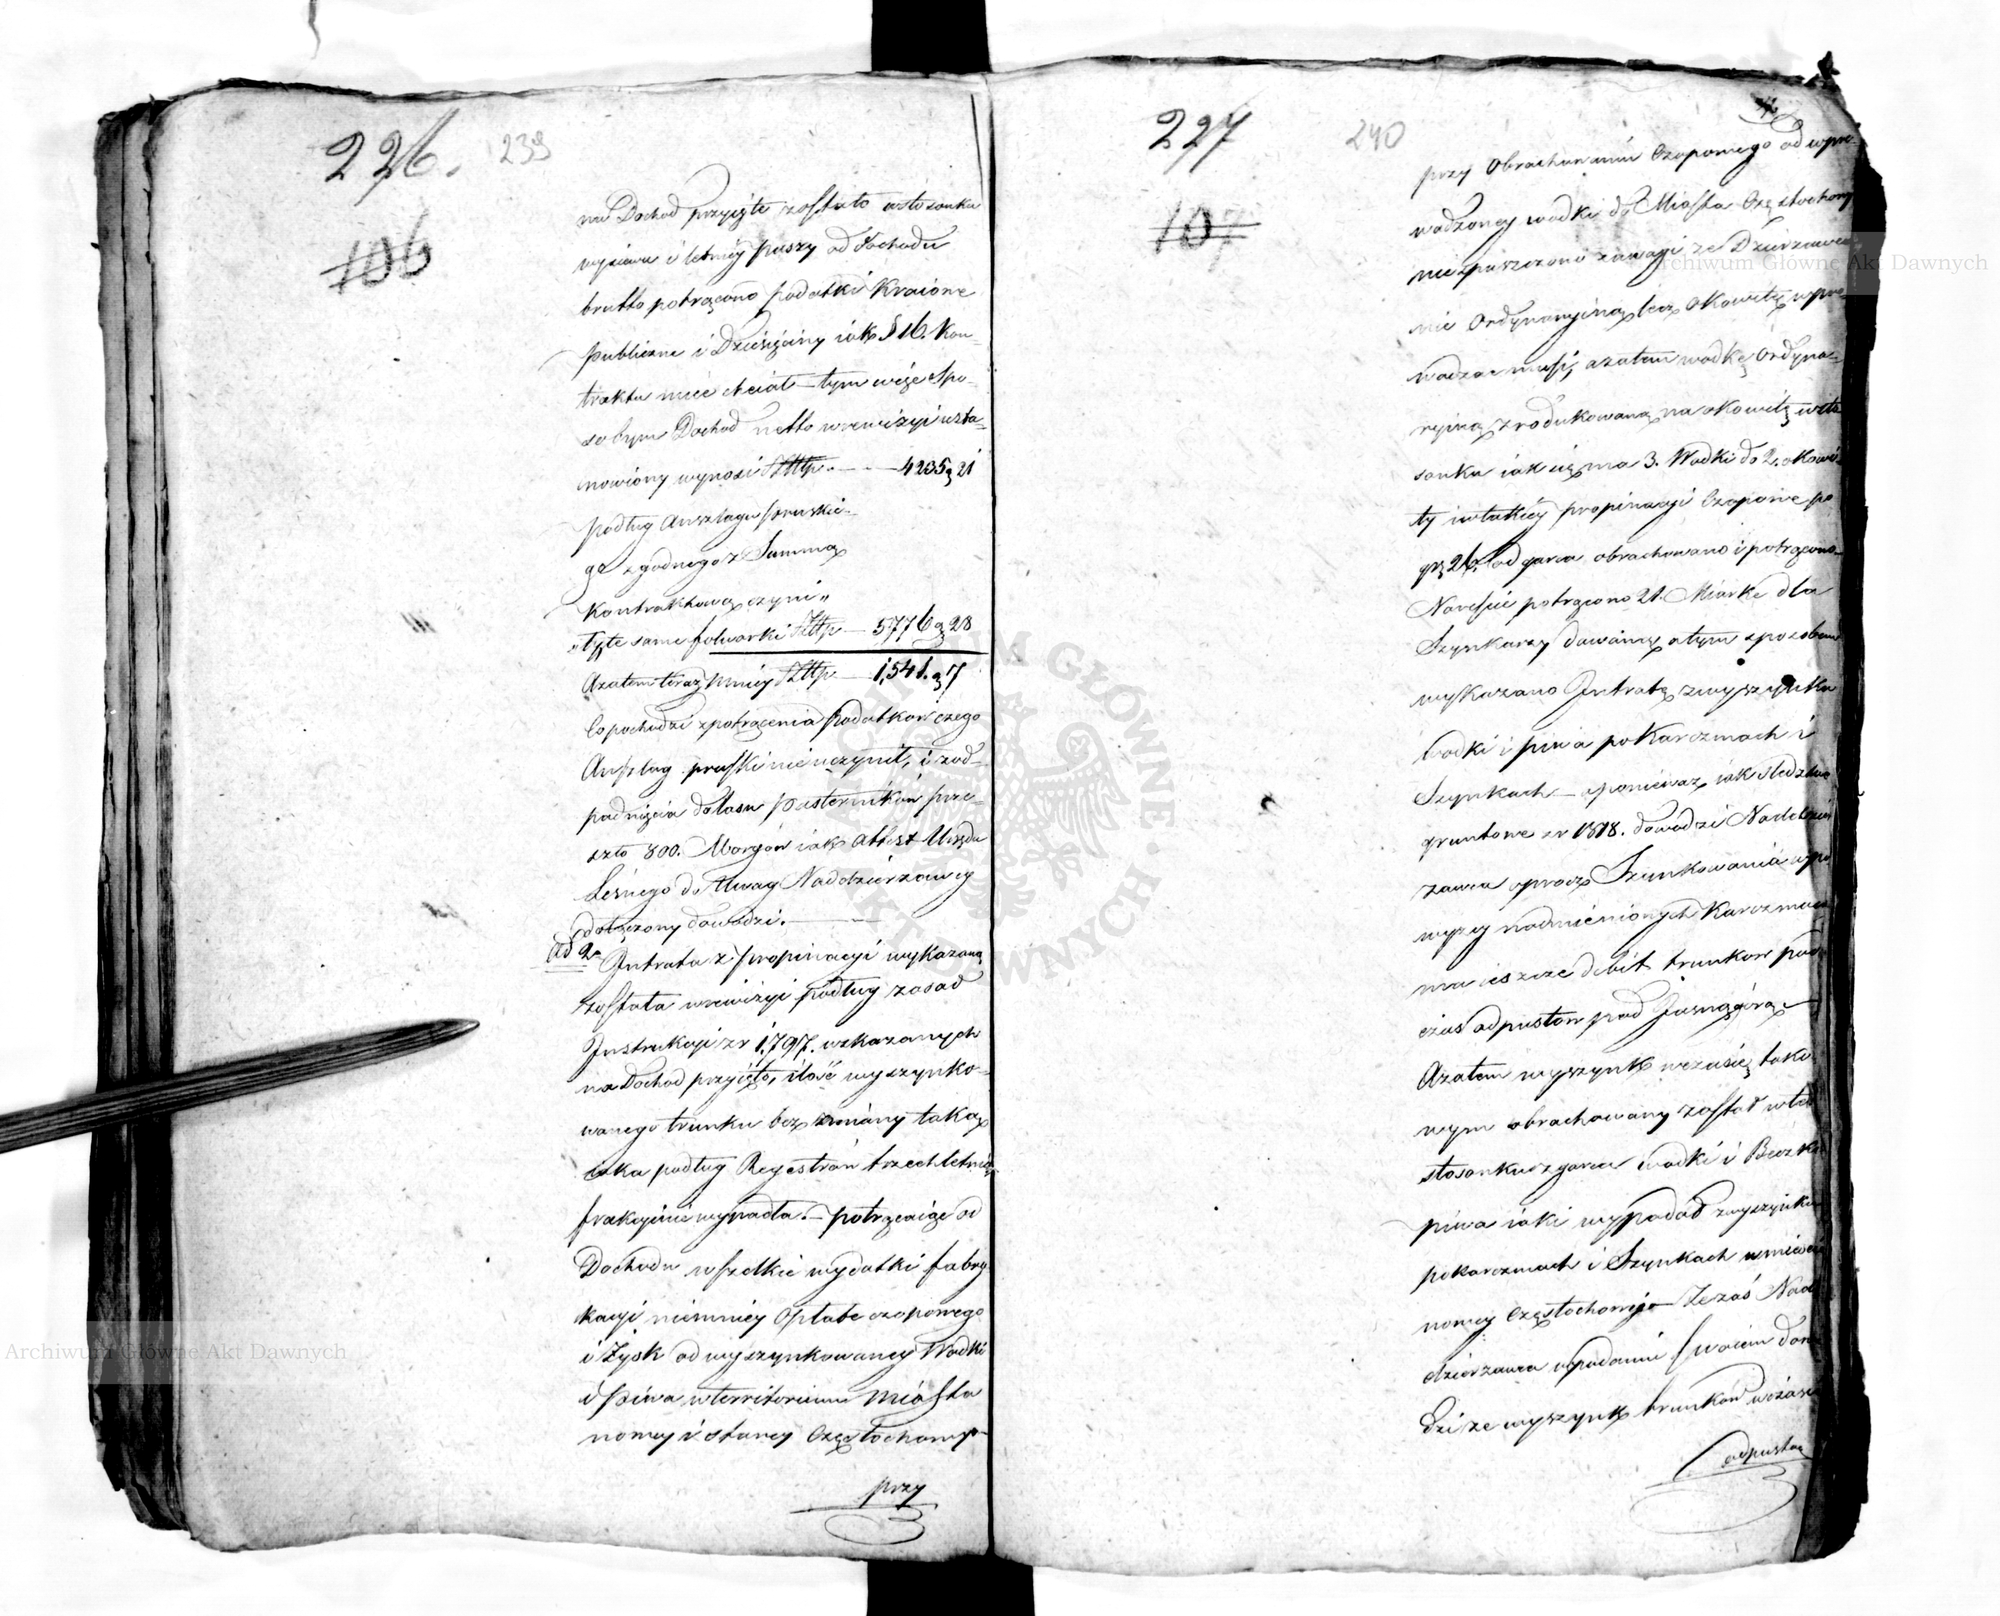 226.
239
106
na Dochod przyięte zostało wstosunku
wysiewu i letniey paszy od dochodu
brutto potrącono podatki Kraiowe
publiczne i Dziesięciny iak § 16. Kon-
traktu mieć chciał – tym więc spo-
sobem Dochod netto w rewizyi usta-
nowiony wynosi Złtp. – – 4235 g 21
podług Anszlagu pruskie-
go zgodnego z Summą
Kontraktową czyni „
„ tyże same folwarki Złtp – 5776 g 28
Azatem teraz mniey Złtp – 1,541. g 7
Co pochodzi z potrącenia podatkow czego
Anszlag pruski nie uczynił, i z od-
padnięcia do lasu pasterników prze-
szło 800. Morgów iak Attest Urzędu
Leśnego do Uwag Naddzierzawcy
dołączony dowodzi. –
ad 2o Intrata z propinacyi wykazaną
została w rewizyi podług zasad
Instrukcyi z r 1,797. wskazanych
na Dochod przyięto, ilość wyszynko-
wanego trunku bez zmiany taką
iaka podług Regestrów trzechletnich
frakcyinie wypadła. – potrącaiąc od
Dochodu wszelkie wydatki fabry
kacyi niemniey opłatę czopowego
i Zysk od wyszynkowaney Wodki
i piwa w territorium Miasta
nowey i starey Częstochowy –
przy
227
240
107
przy Obrachowaniu Czopowego od wpro-
wadzoney wodki do Miasta Częstochowy
nie spuszczono z uwagi ze Dzierzawca
nie Ordynaryiną lecz okowitę wpro-
wadzać musi, azatem wodkę Ordyna-
ryiną zredukowaną na okowitę w sto
sunku iak się ma 3. Wodki do 2. okowi-
ty i w takiey propinacyi Czopowe po
gr 26. od garca obrachowano i potrącono –
Nareście potrącono 21. Miarkę dla
Szynkarzy dawaną a tym sposobem
wykazano Intratę z wyszynku
wodki i piwa po Karczmach i
Szynkach – a ponieważ iak sledztwo
gruntowe z r 1818. dowodzi Naddzier
zawca oprocz Szynkowania w po
wyzey nadmienionych Karczmach
ma ieszcze debit trunkow pod
czas odpustow pod Jasnągórą –
Azatem wyszynk w czasie tako
wym obrachowany został w tym
stosunku z garca wodki i Beczki
piwa iaki wypadał z wyszynku
po karczmach i Szynkach w mieście
nowey Częstochowie – Ze zaś Nad
dzierzawca w podaniu swoiem dowo
dzi ze wyszynk trunków w czasie
odpustow
Archiwum Główne Akt Dawnych
Archiwum Główne Akt Dawnych
ARCHIWUM GŁÓWNE AKT DAWNYCH